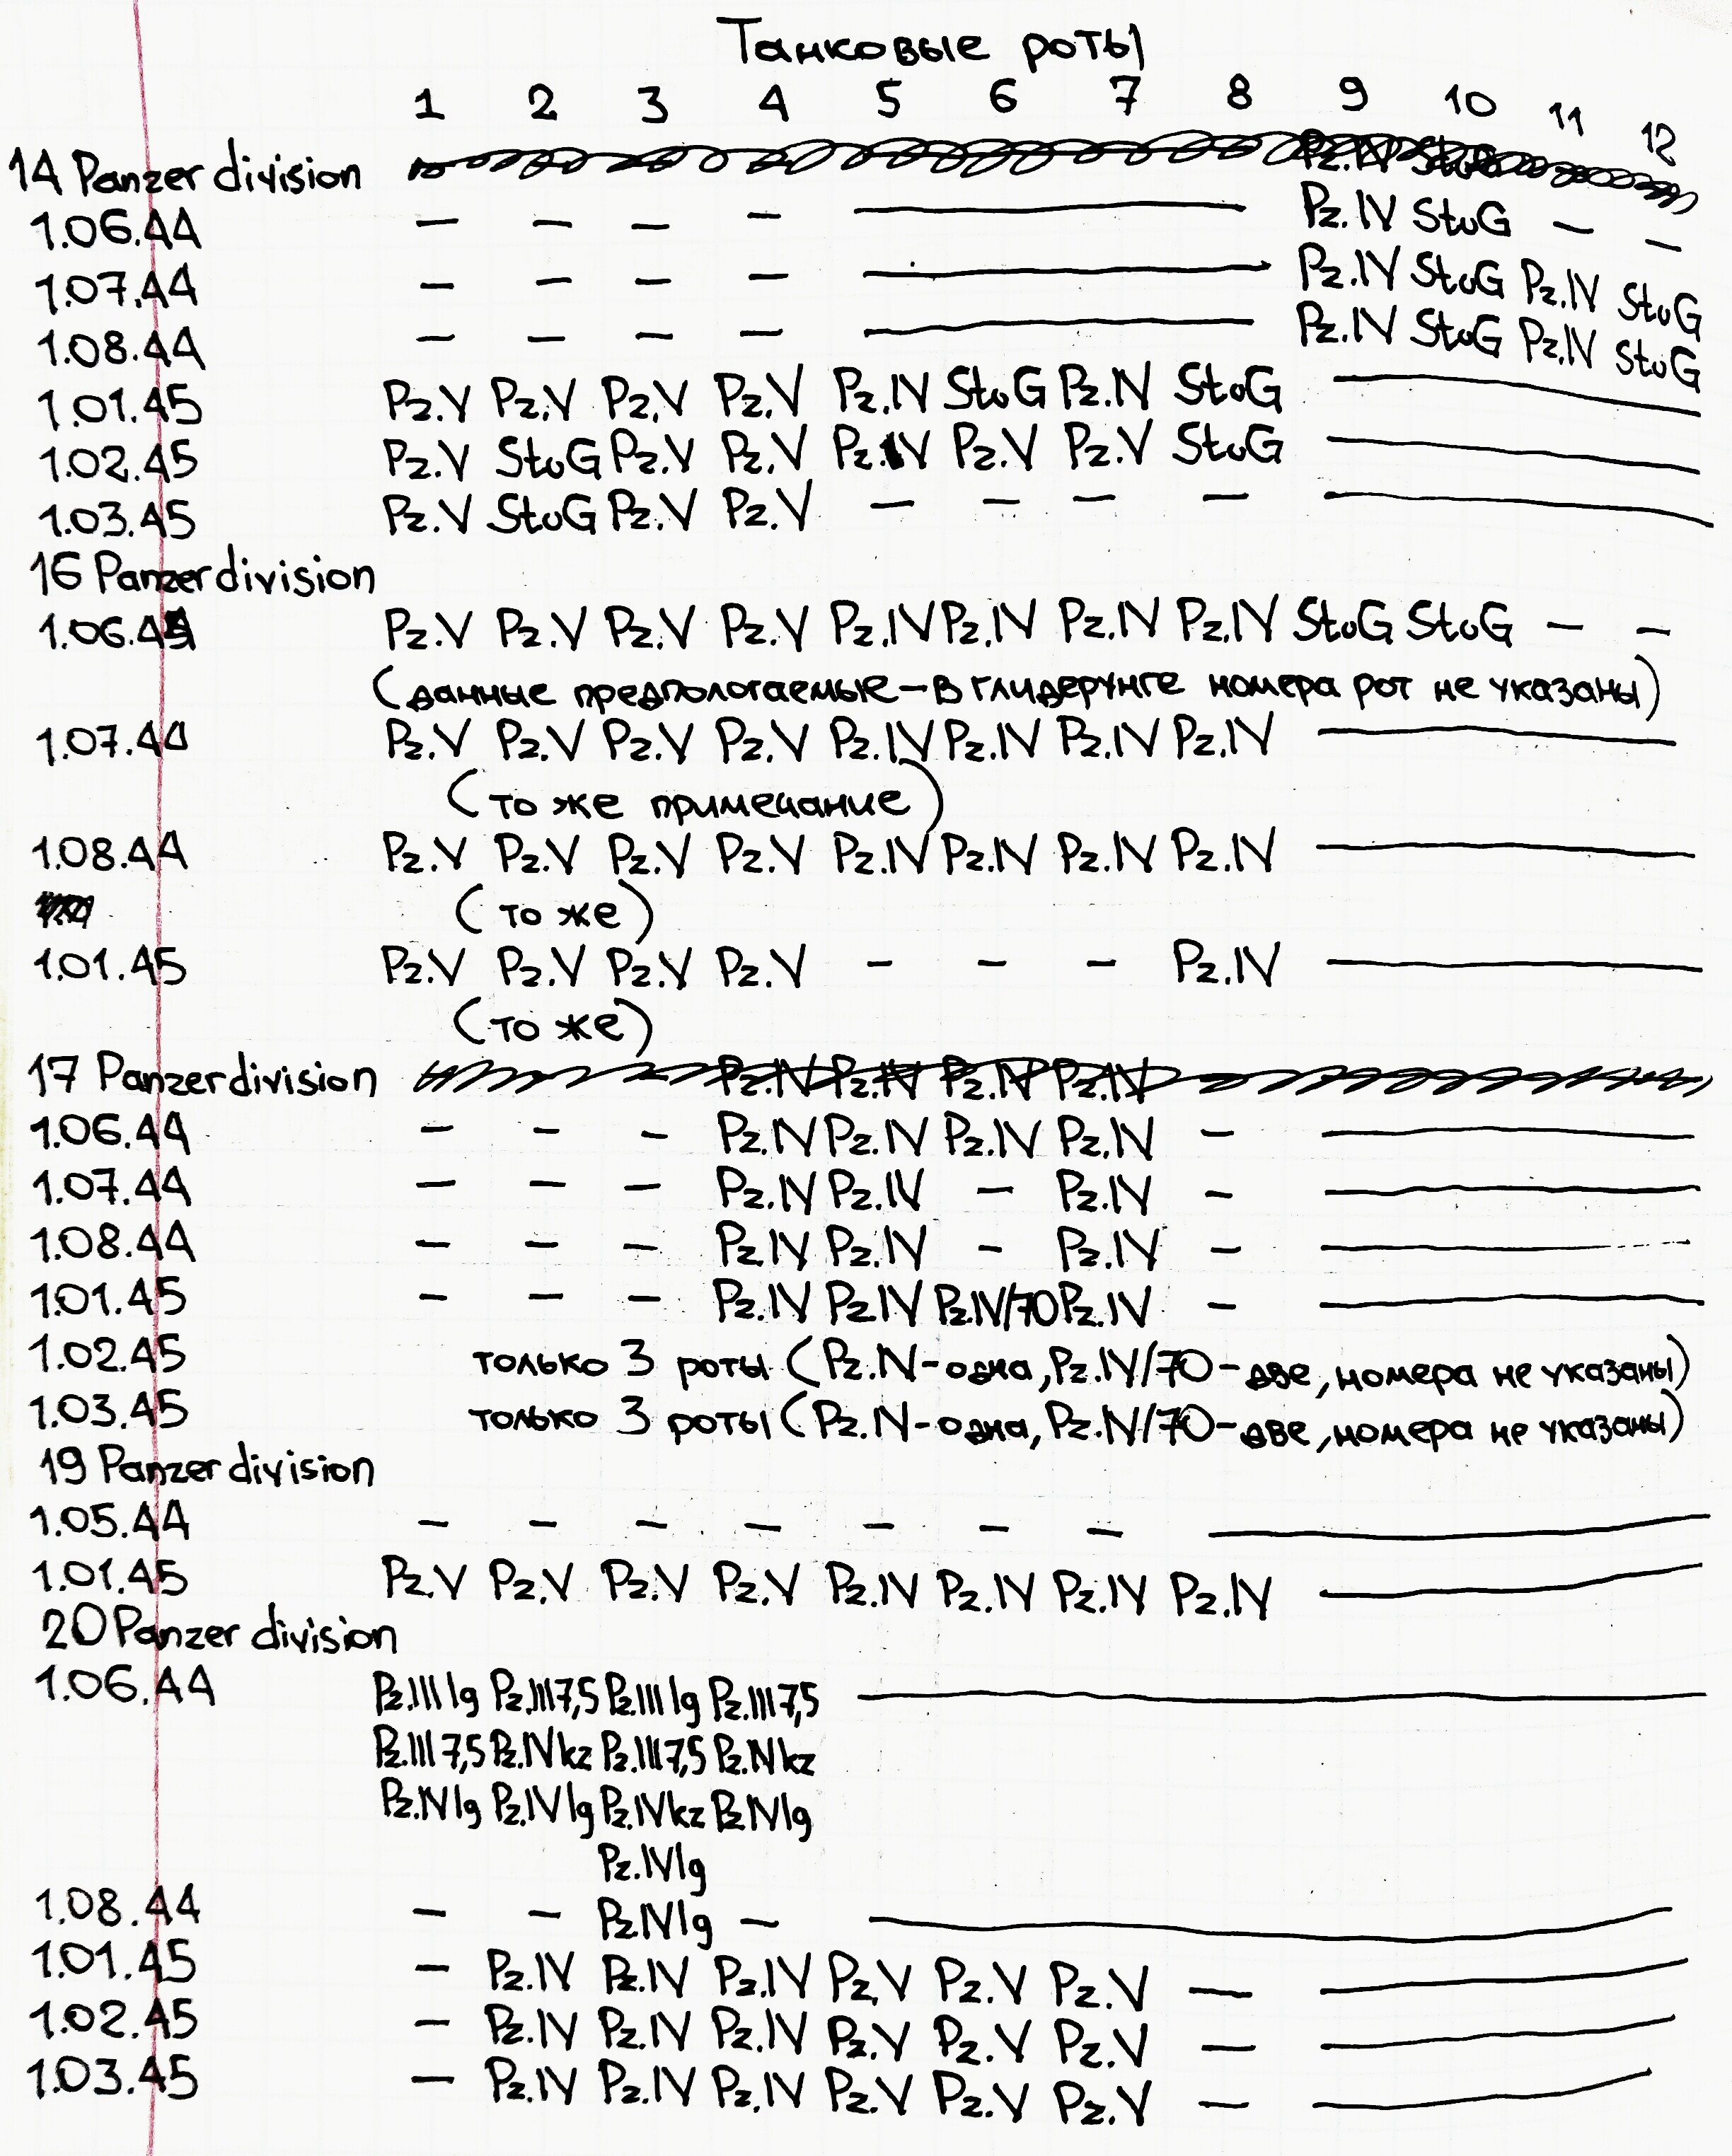 Танковые роты
1 2 3 4 5 6 7 8 9 10 11 12
14 Panzerdivision
1.06.44 — — — — — Pz.IV StuG — —
1.07.44 — — — — — Pz.IV StuG Pz.IV StuG
1.08.44 — — — — — Pz.IV StuG Pz.IV StuG
1.01.45 Pz.V Pz.V Pz.V Pz.V Pz.IV StuG Pz.IV StuG —
1.02.45 Pz.V StuG Pz.V Pz.V Pz.IV Pz.V Pz.V StuG —
1.03.45 Pz.V StuG Pz.V Pz.V — — — — —
16 Panzerdivision
1.06.44 Pz.V Pz.V Pz.V Pz.V Pz.IV Pz.IV Pz.IV Pz.IV StuG StuG — —
(данные предпологаемые – в глидерунге номера рот не указаны)
1.07.44 Pz.V Pz.V Pz.V Pz.V Pz.IV Pz.IV Pz.IV Pz.IV —
(то же примечание)
1.08.44 Pz.V Pz.V Pz.V Pz.V Pz.IV Pz.IV Pz.IV Pz.IV —
(то же)
1.01.45 Pz.V Pz.V Pz.V Pz.V - - - Pz.IV —
(то же)
17 Panzerdivision Pz.IV Pz.IV Pz.IV Pz.IV
1.06.44 — — — Pz.IV Pz.IV Pz.IV Pz.IV — —
1.07.44 — — — Pz.IV Pz.IV — Pz.IV — —
1.08.44 — — — Pz.IV Pz.IV — Pz.IV — —
1.01.45 — — — Pz.IV Pz.IV Pz.IV/70 Pz.IV — —
1.02.45 только 3 роты (Pz.IV - одна, Pz.IV/70 - две, номера не указаны)
1.03.45 только 3 роты (Pz.IV - одна, Pz.IV/70 - две, номера не указаны)
19 Panzerdivision
1.05.44 — — — — — — — —
1.01.45 Pz.V Pz.V Pz.V Pz.V Pz.IV Pz.IV Pz.IV Pz.IV —
20 Panzerdivision
1.06.44 Pz.III lg Pz.III 7,5 Pz.III lg Pz.III 7,5 —
Pz.III 7,5 Pz.IV kz Pz.III 7,5 Pz.IV kz
Pz.IV lg Pz.IV lg Pz.IV kz Pz.IV lg
Pz.IV lg
1.08.44 — — Pz.IV lg — —
1.01.45 — Pz.IV Pz.IV Pz.IV Pz.V Pz.V Pz.V — —
1.02.45 — Pz.IV Pz.IV Pz.IV Pz.V Pz.V Pz.V — —
1.03.45 — Pz.IV Pz.IV Pz.IV Pz.V Pz.V Pz.V — —